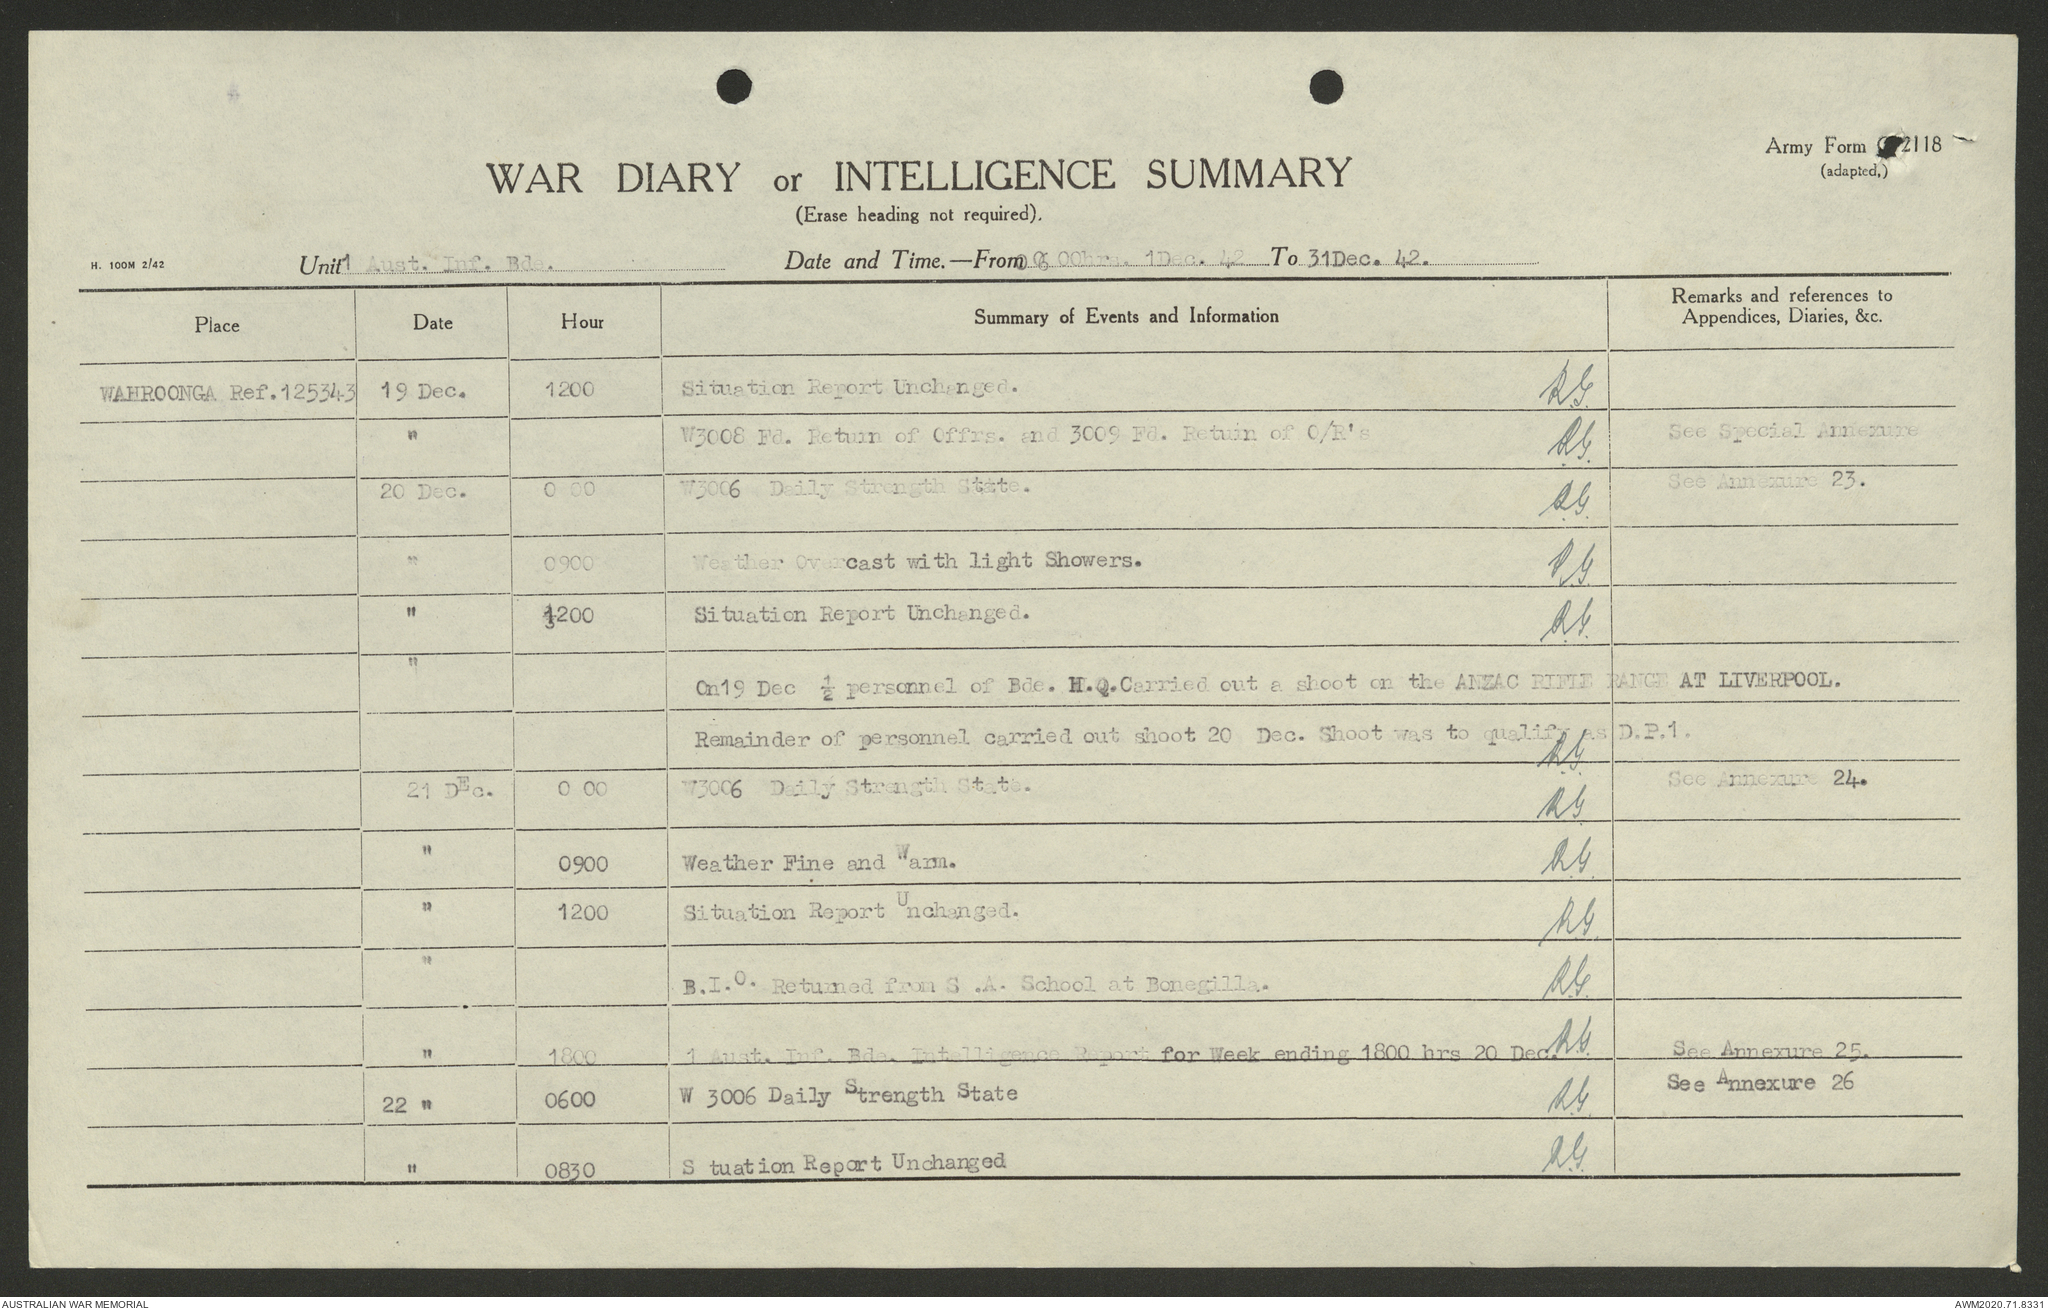 Army Form C. 2118
(adapted.)
WAR DIARY or INTELLIGENCE SUMMARY
(Erase heading not required).
H. 100M 2/42
Unit 1 Aust. Inf. Bde. Date and Time.—From 00hrs. 1Dec. 42 To 31Dec. 42.
Place Date Hour Summary of Events and Information Remarks and references to
Appendices, Diaries, &c.
WAHROONGA Ref.125343 19 Dec. 1200 Situation Report Unchanged. R.G.
" W3008 Fd. Retuin of Offrs. and 3009 Fd. Retuin of O/R's R.G. See Special Annexure
20 Dec. 0 00 W3006 Daily Strength State. R.G. See Annexure 23.
" 0900 Weather Overcast with light Showers. R.G.
" 1200 Situation Report Unchanged. R.G.
"
On19 Dec ½ personnel of Bde. H.Q.Carried out a shoot on the ANZAC RIFLE RANGE AT LIVERPOOL.
Remainder of personnel carried out shoot 20 Dec. Shoot was to qualify as D.P.1. R.G.
21 DEc. 0 00 W3006 Daily Strength State. R.G. See Annexure 24.
" 0900 Weather Fine and Warm. R.G.
" 1200 Situation Report Unchanged. R.G.
" B.I.O. Returned from S .A. School at Bonegilla. R.G.
" 1800 1 Aust. Inf. Bde. Intelligence Report for Week ending 1800 hrs 20 Dec. R.G. See Annexure 25.
22 " 0600 W 3006 Daily Strength State R.G. See Annexure 26
" 0830 S tuation Report Unchanged R.G.
AUSTRALIAN WAR MEMORIAL AWM2020.71.8331